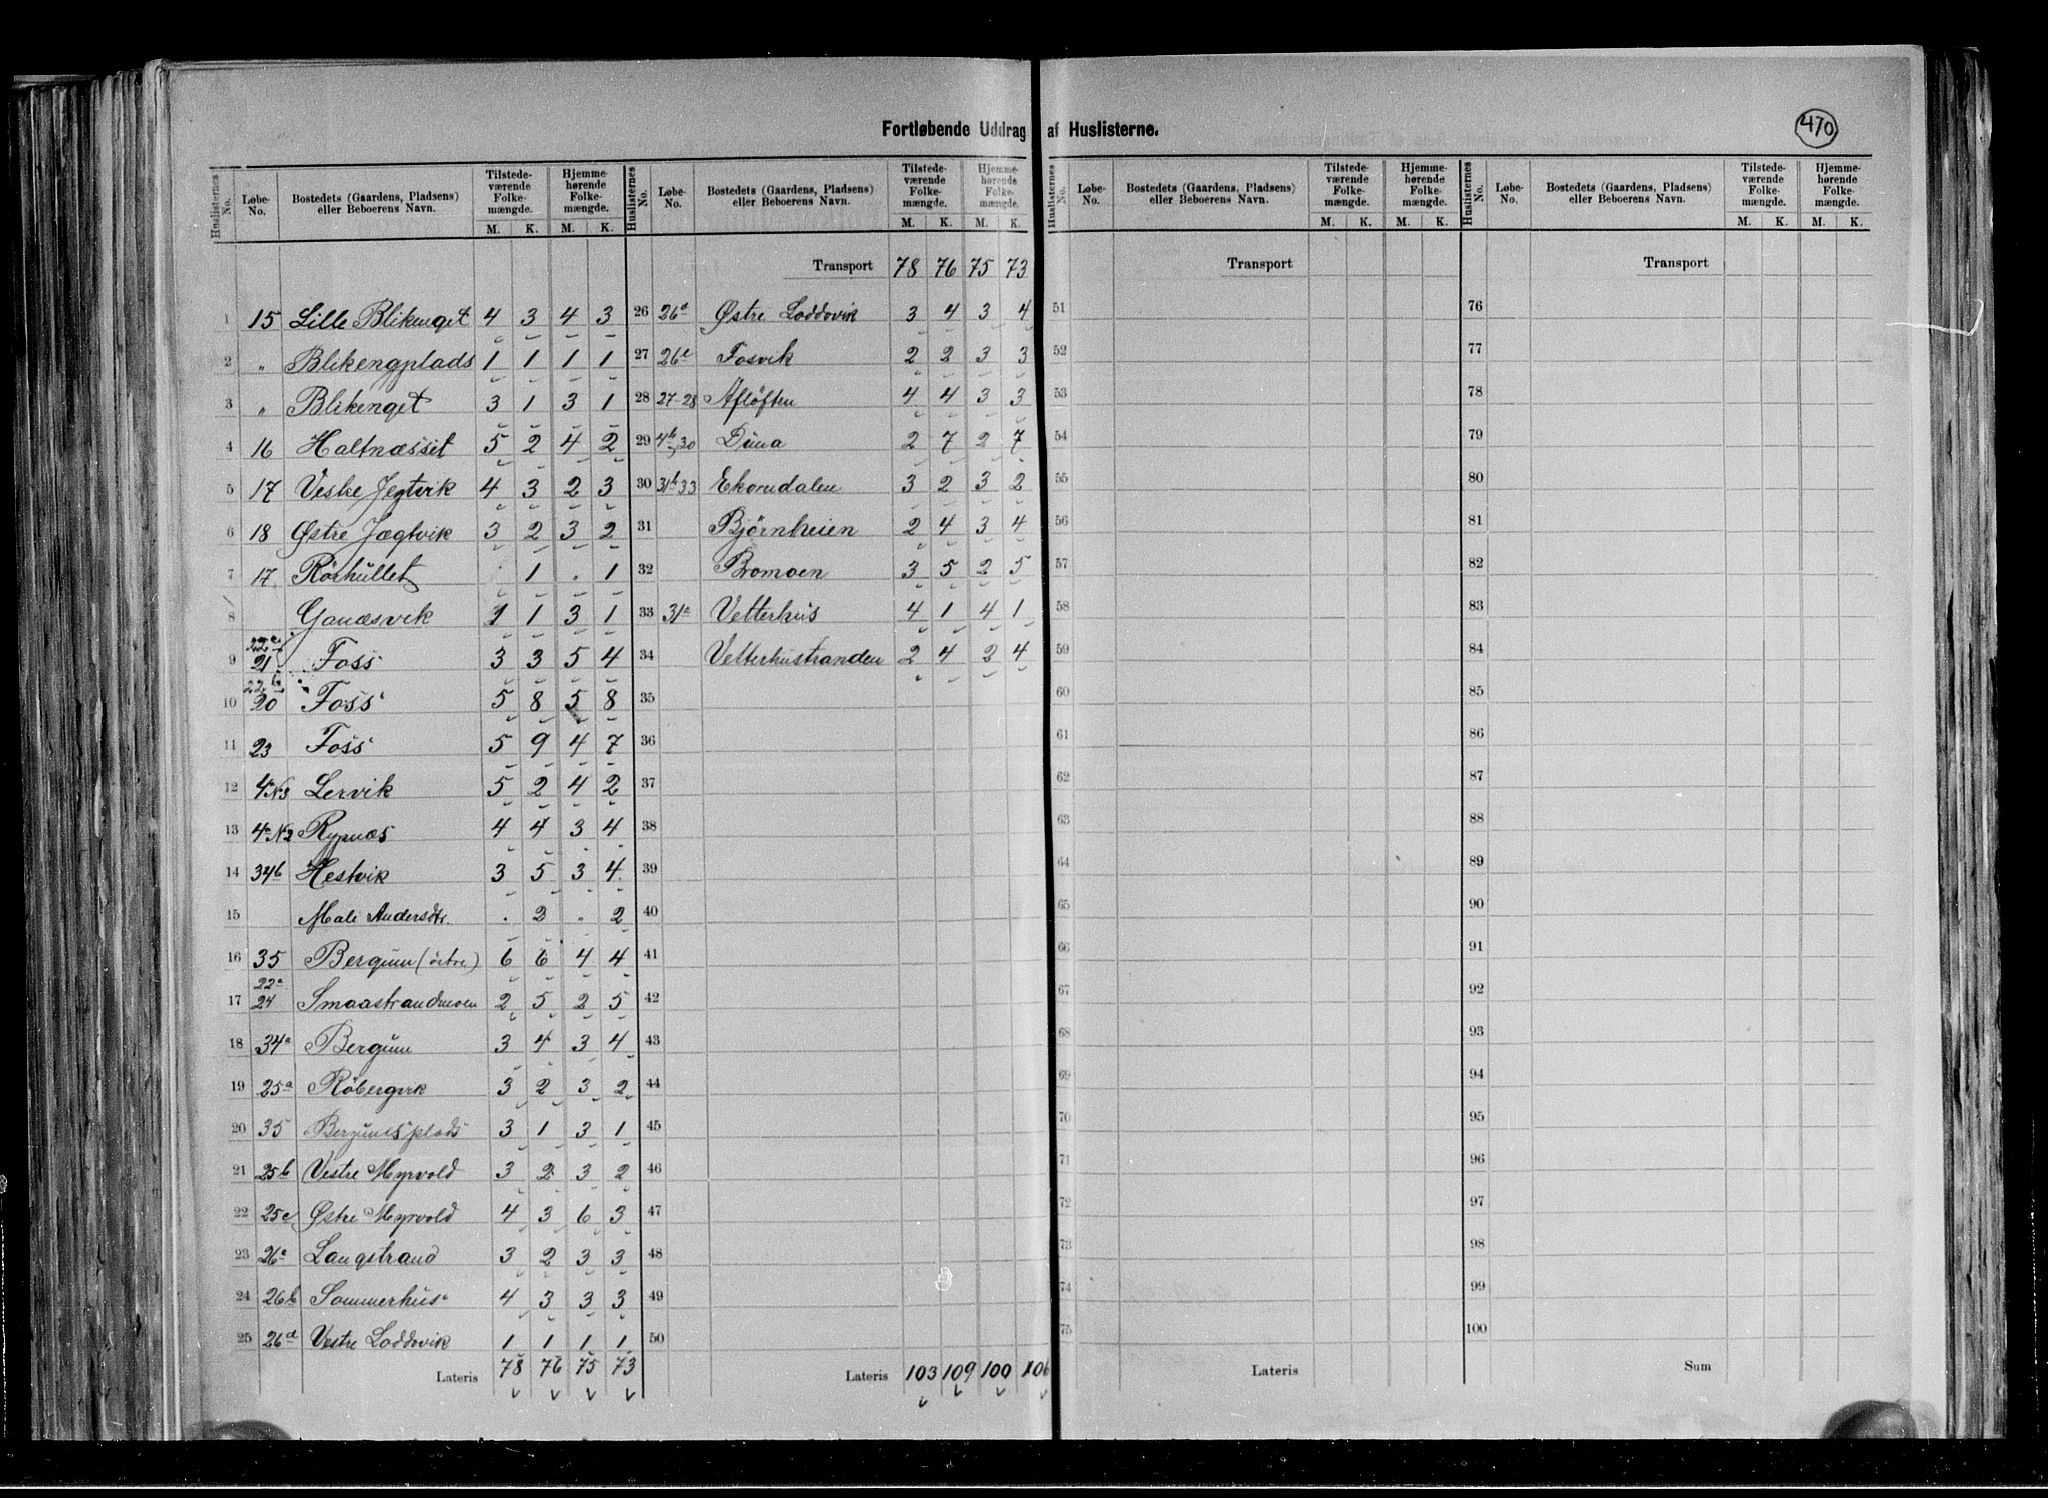 Fortløbende Uddrag af Huslisterne.
470
Huslisternes No. Løbe-No. Bostedets (Gaardens, Pladsens) eller Beboerens Navn. Tilstedeværende Folkemængde. M. K. Hjemmehørende Folkemængde. M. K.
1 15 Lille Blikenget 4 3 4 3
2 " Blikengplads 1 1 1 1
3 " Blikenget 3 1 3 1
4 16 Haltnæsset 5 2 4 2
5 17 Vestre Jegtvik 4 3 2 3
6 18 Østre Jægtvik 3 2 3 2
7 17 Rörhullet . 1 . 1
8 Ganæsvik 1 1 3 1
9 21 Foss 3 3 5 4
10 22b 20 Foss 5 8 5 8
11 23 Foss 5 9 4 7
12 4a N3 Lervik 5 2 4 2
13 4a N2 Rypnæs 4 4 3 4
14 34b Hestvik 3 5 3 4
15 Mali Andersdtr. . 2 . 2
16 35 Bergum (östre) 6 6 4 4
17 22a 24 Smaastrandmoen 2 5 2 5
18 34a Bergum 3 4 3 4
19 25a Röbergvik 3 2 3 2
20 35 Bergumsplads 3 1 3 1
21 25b Vestre Myrvold 3 2 3 2
22 25c Østre Myrvold 4 3 6 3
23 26a Langstrand 3 2 3 3
24 26b Sommerhus 4 3 3 3
25 26d Vestre Loddovik 1 1 1 1
Lateris 78 76 75 73
Huslisternes No. Løbe-No. Bostedets (Gaardens, Pladsens) eller Beboerens Navn. Tilstedeværende Folkemængde. M. K. Hjemmehørende Folkemængde. M. K.
Transport 78 76 75 73
26 26d Østre Loddovik 3 4 3 4
27 26c Fosvik 2 2 3 3
28 27-28 Afløften 4 4 3 3
29 4b 30 Duna 2 7 2 7
30 31b 33 Ekorndalen 3 2 3 2
31 Bjørnheien 2 4 3 4
32 Bromoen 3 5 2 5
33 31a Vetterhus 4 1 4 1
34 Vetterhustranden 2 4 2 4
35
36
37
38
39
40
41
42
43
44
45
46
47
48
49
50
Lateris 103 109 100 106
Huslisternes No. Løbe-No. Bostedets (Gaardens, Pladsens) eller Beboerens Navn. Tilstedeværende Folkemængde. M. K. Hjemmehørende Folkemængde. M. K.
Transport
51
52
53
54
55
56
57
58
59
60
61
62
63
64
65
66
67
68
69
70
71
72
73
74
75
Lateris
Huslisternes No. Løbe-No. Bostedets (Gaardens, Pladsens) eller Beboerens Navn. Tilstedeværende Folkemængde. M. K. Hjemmehørende Folkemængde. M. K.
Transport
76
77
78
79
80
81
82
83
84
85
86
87
88
89
90
91
92
93
94
95
96
97
98
99
100
Sum